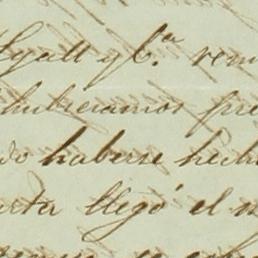 Lyall y C.ª rem
hubieramos pre
do haberse hech
arta llegó el m